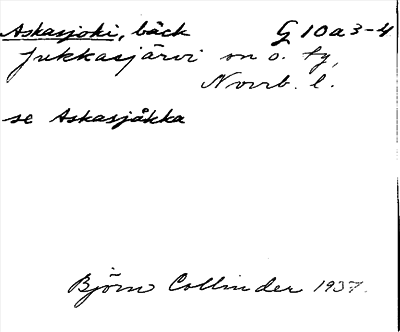 Askasjoki, bäck G 10a3-4
Jukkasjärvi sn o. ty,
Norrb. l.
se Askasjåkka
Björn Collinder 1937.